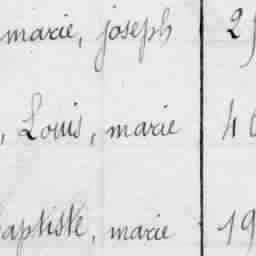 marie, joseph
, Louis, marie
aptiste, marie 19